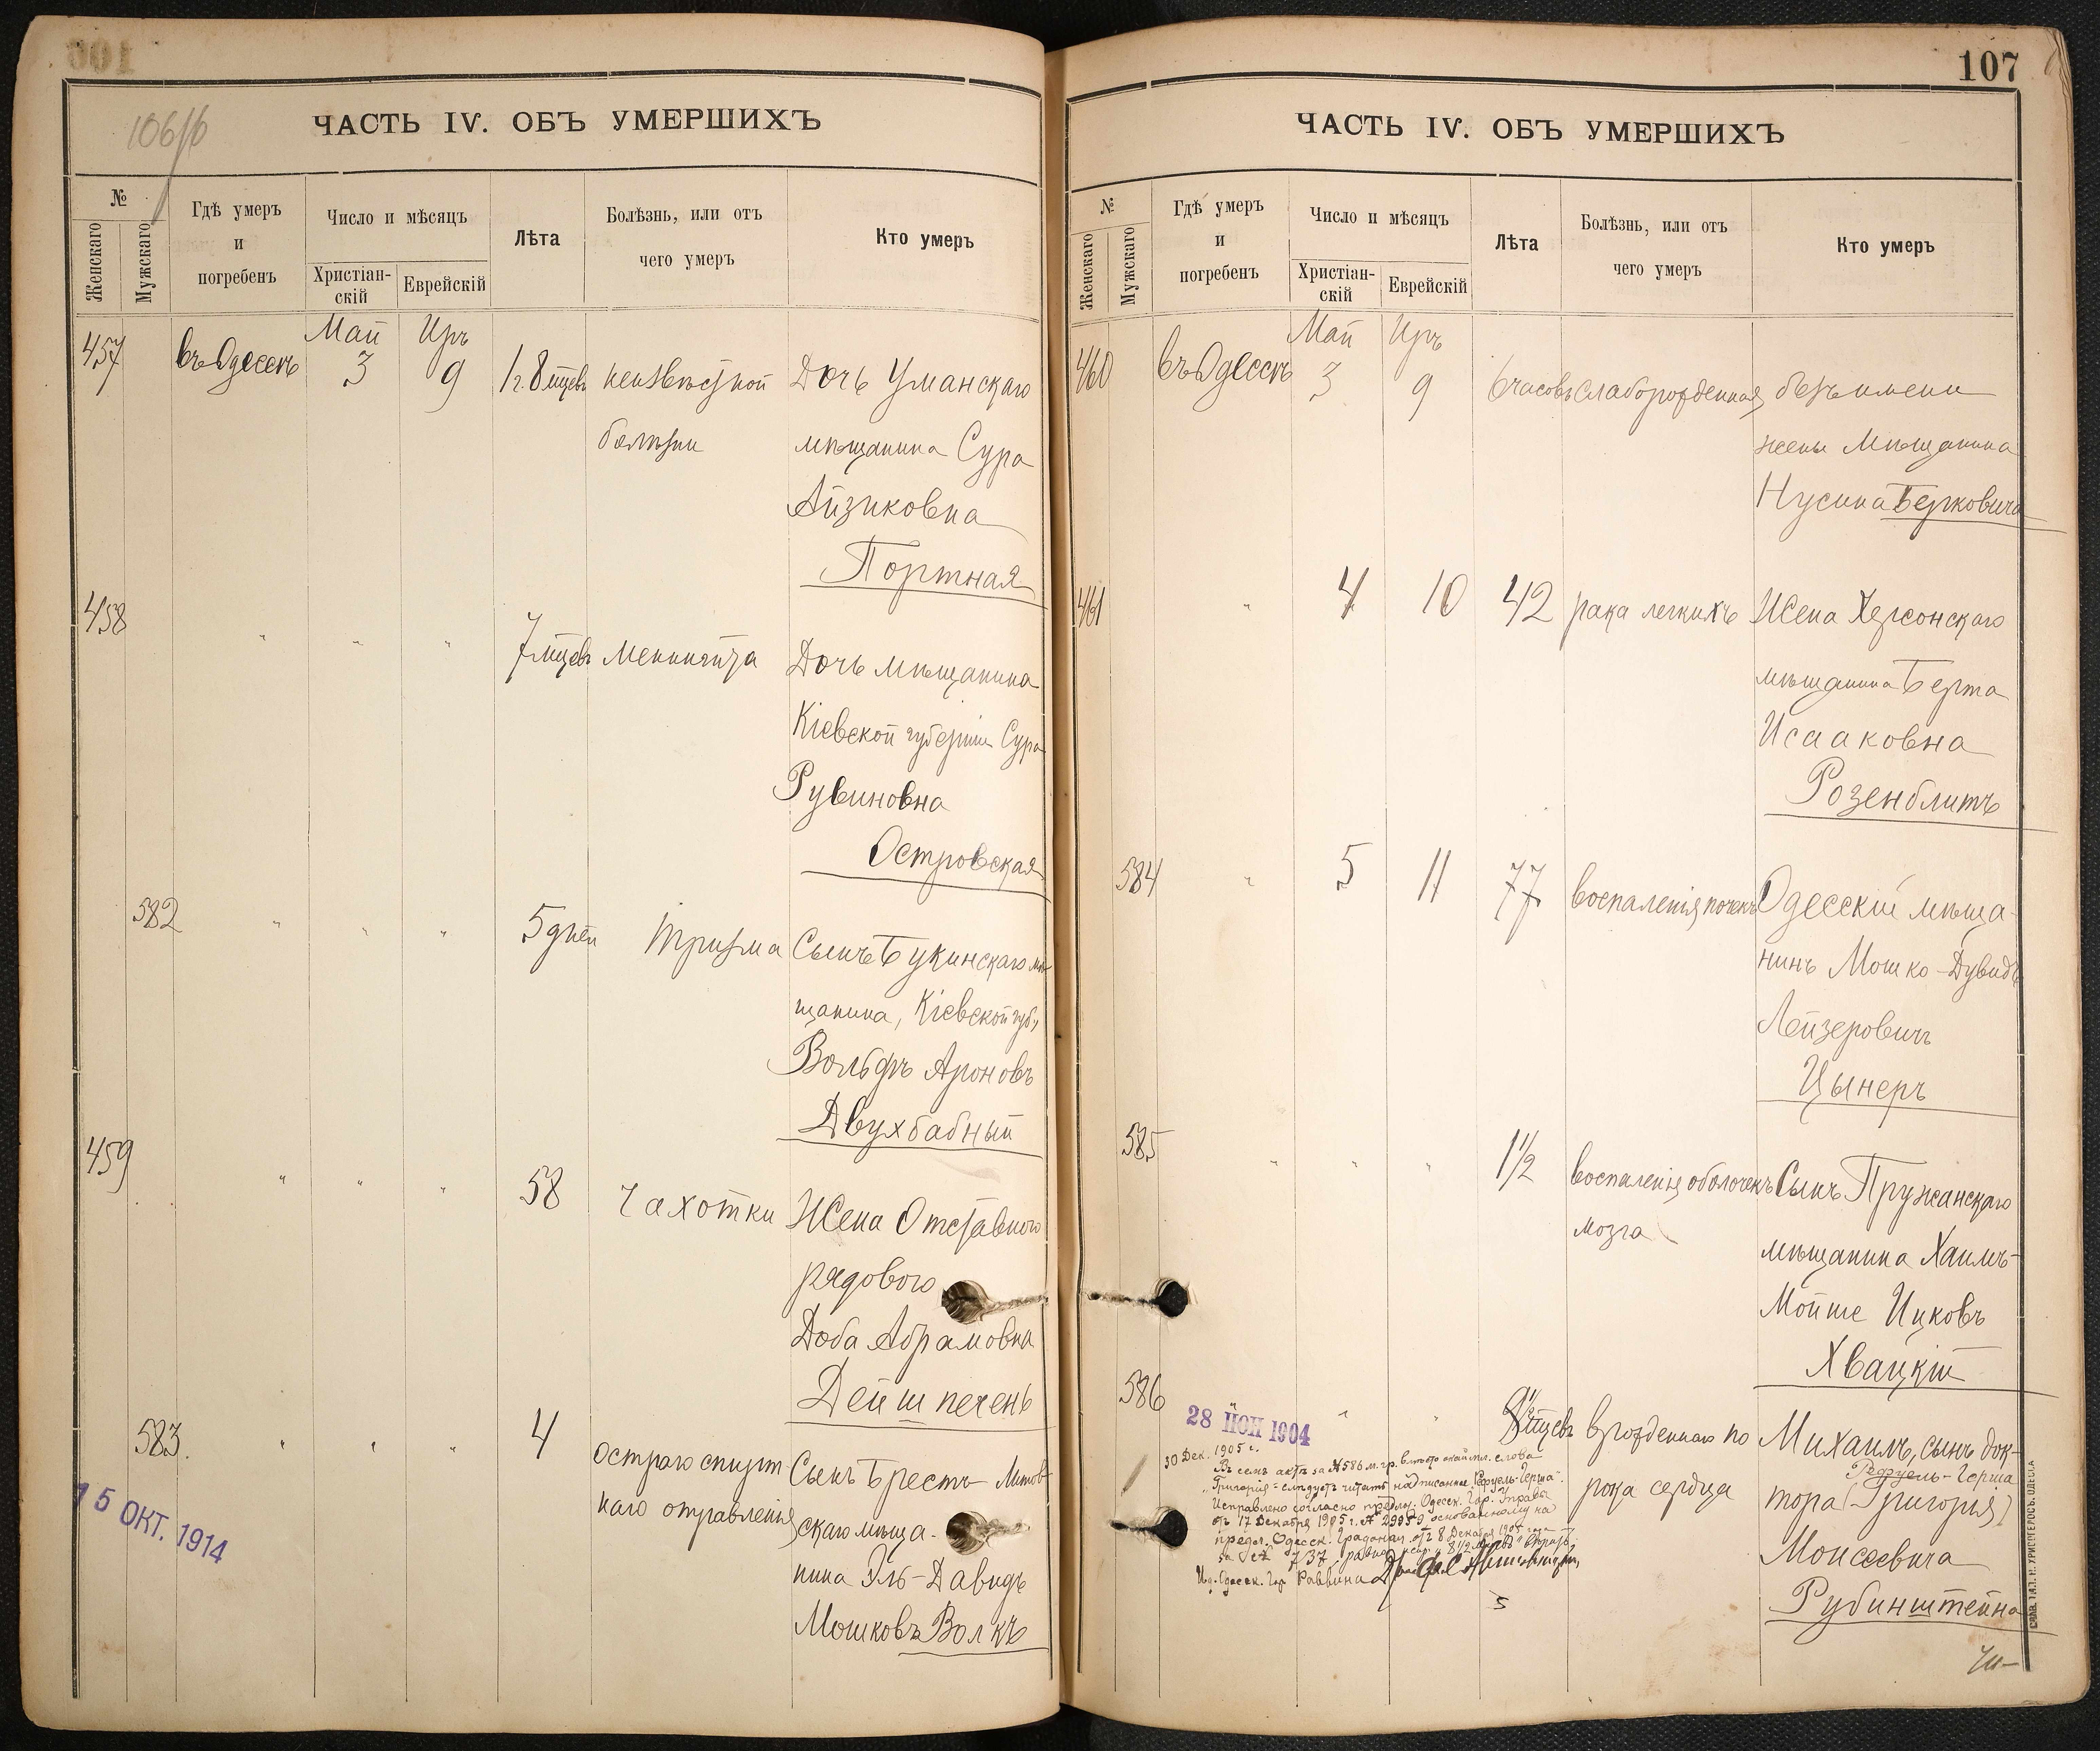 106/б
ЧАСТЬ IV. ОБЪ УМЕРШИХЪ
№
Женскаго
Мужскаго
Гдѣ умеръ
и
погребенъ
Число и мѣсяцъ
Христіан-
скій
Еврейскій
Лѣта
Болѣзнь, или отъ
чего умеръ
Кто умеръ
Май Иръ
457 въ Одессѣ 3 9 1 г. 8 мцевъ неизвѣстной Дочь Уманскаго
болѣзни мѣщанина Сура
Айзиковна
Портная
458 " " " 7 мцевъ менингита Дочь мѣщанина
Кіевской губерніи Сура
Рувиновна
Островская
582 " " " 5 дней тризма Сынъ Букинскаго мѣ-
щанина, Кіевской губ.,
Вольфъ Ароновъ
Двухбабный
459 " " " 58 чахотки Жена Отставного
рядового
Доба Абрамовна
Дейшпечень
583. " " " 4 остраго спирт Сынъ Брестъ-Литов
наго отравленія скаго мѣща-
нина Эль-Давидъ
Мошковъ Волкъ
15 ОКТ. 1914
107
ЧАСТЬ IV. ОБЪ УМЕРШИХЪ
№
Женскаго
Мужскаго
Гдѣ умеръ
и
погребенъ
Число и мѣсяцъ
Христіан-
скій
Еврейскій
Лѣта
Болѣзнь, или отъ
чего умеръ
Кто умеръ
Май Иръ
460 въ Одессѣ 3 9 6 часовъ слаборожденная безъ имени
жены Мѣщанина
Нусина Берковича
461 " 4 10 42 рака легкихъ Жена Херсонскаго
мѣщанина Берта
Исааковна
Розенблитъ
584 " 5 11 77 воспаленія почекъ Одесскій мѣща-
нинъ Мошко-Дувидъ
Лейзеровичъ
Цынеръ
585 " " " 1½ воспаленія оболочекъ Сынъ Пружанскаго
мозга мѣщанина Хаимъ-
Мойше Ицковъ
Хвацкій
586 " " " мцевъ врожденнаго по Михаилъ, сынъ док-
Рефуель-Герша
рока сердца тора (Григорія)
Моисеевича
Рубинштейна
28 ІЮН 1904
30 Дек. 1905 г.
Въ семъ актѣ за № 586 м. гр. вмѣсто слова
"Григорія" слѣдуетъ читать надписанное "Рефуель-Герша".
Исправлено согласно предлож. Одесск. Гор. Управы
отъ 17 Декабря 1905 г. № 29959, основанному на
предл. Одесск. Градонач. отъ 8 Декабря 1905 г.
за № 737
И. д. Одесск. Гор. Раввина
5
СЛАВ. ТИП. Н. ХРИСОГЕЛОСЪ. ОДЕССА